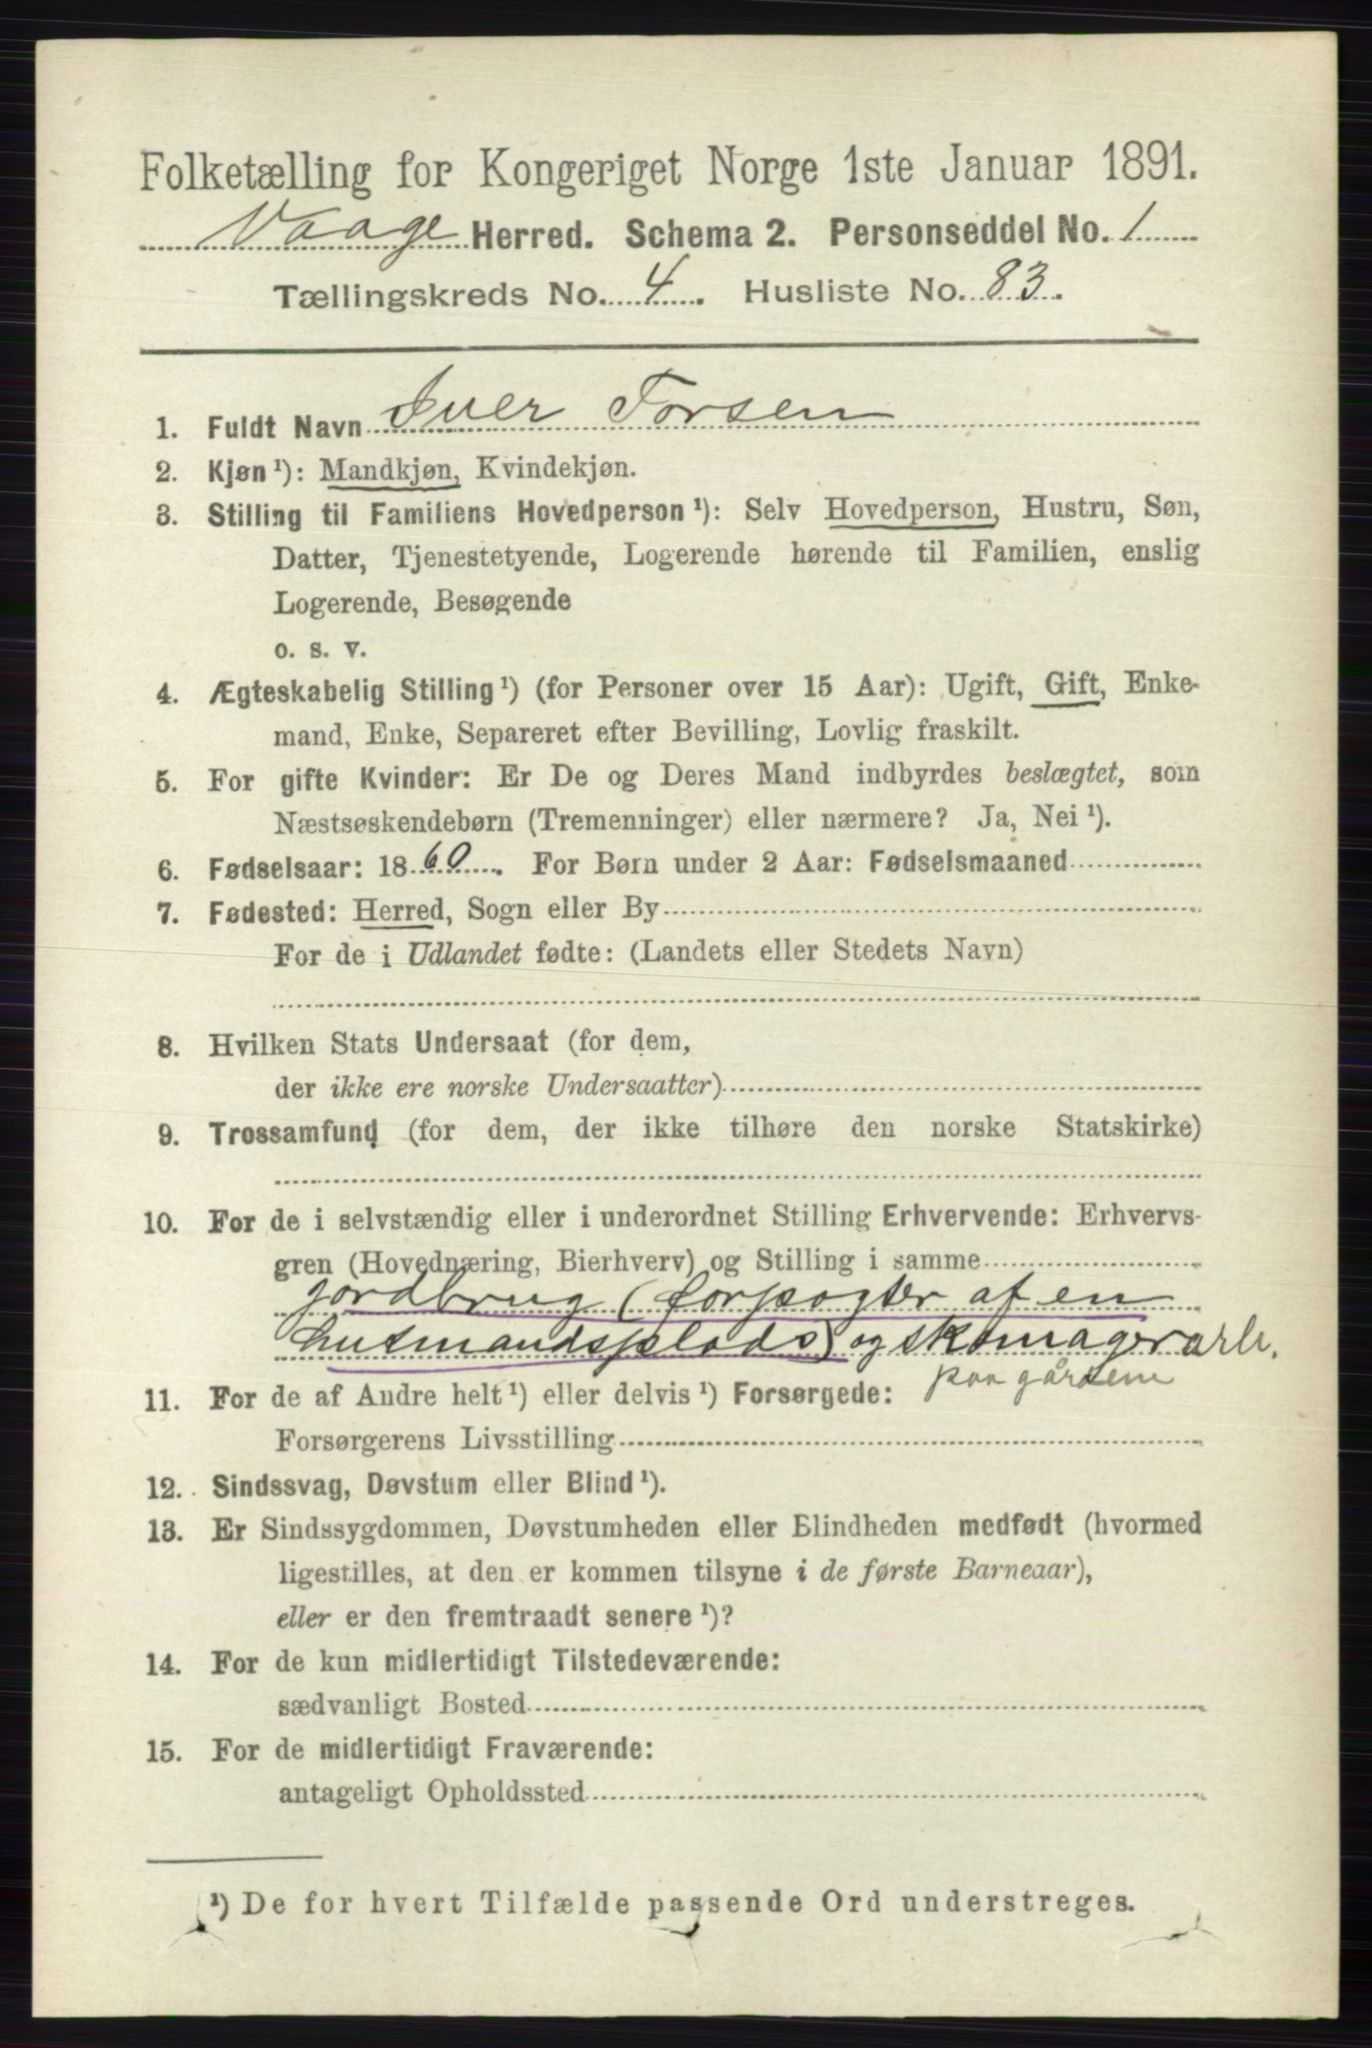 Folketælling for Kongeriget Norge 1ste Januar 1891.
Vaage Herred. Schema 2. Personseddel No. 1
Tællingskreds No. 4. Husliste No. 83.
1. Fuldt Navn Iver Torsen
2. Kjøn ¹): Mandkjøn, Kvindekjøn.
3. Stilling til Familiens Hovedperson ¹): Selv Hovedperson, Hustru, Søn,
Datter, Tjenestetyende, Logerende hørende til Familien, enslig
Logerende, Besøgende
o. s. v.
4. Ægteskabelig Stilling ¹) (for Personer over 15 Aar): Ugift, Gift, Enke-
mand, Enke, Separeret efter Bevilling, Lovlig fraskilt.
5. For gifte Kvinder: Er De og Deres Mand indbyrdes beslægtet, som
Næstsøskendebørn (Tremenninger) eller nærmere? Ja, Nei ¹).
6. Fødselsaar: 1860. For Børn under 2 Aar: Fødselsmaaned
7. Fødested: Herred, Sogn eller By
For de i Udlandet fødte: (Landets eller Stedets Navn)
8. Hvilken Stats Undersaat (for dem,
der ikke ere norske Undersaatter)
9. Trossamfund (for dem, der ikke tilhøre den norske Statskirke)
10. For de i selvstændig eller i underordnet Stilling Erhvervende: Erhvervs-
gren (Hovednæring, Bierhverv) og Stilling i samme
jordbrug (forpagter af en
husmandsplads) og skomagerarb.
paa gårdene
11. For de af Andre helt ¹) eller delvis ¹) Forsørgede:
Forsørgerens Livsstilling
12. Sindssvag, Døvstum eller Blind ¹).
13. Er Sindssygdommen, Døvstumheden eller Blindheden medfødt (hvormed
ligestilles, at den er kommen tilsyne i de første Barneaar),
eller er den fremtraadt senere ¹)?
14. For de kun midlertidigt Tilstedeværende:
sædvanligt Bosted
15. For de midlertidigt Fraværende:
antageligt Opholdssted
¹) De for hvert Tilfælde passende Ord understreges.